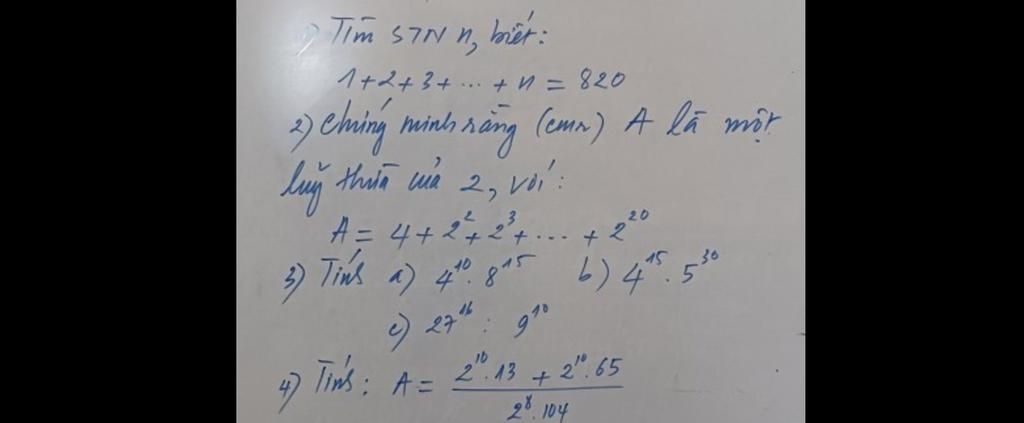 1) Tìm STN n, biết:
1+2+3+...+n = 820
2) Chứng minh rằng (cmr) A là một
luỹ thừa của 2, với:
A = 4 + 2² + 2³ + ... + 2²⁰
3) Tính a) 4¹⁰ . 8¹⁵ b) 4¹⁵ . 5³⁰
c) 27¹⁶ : 9¹⁰
4) Tính: A = \frac{2¹⁰.13 + 2¹⁰.65}{2⁸.104}